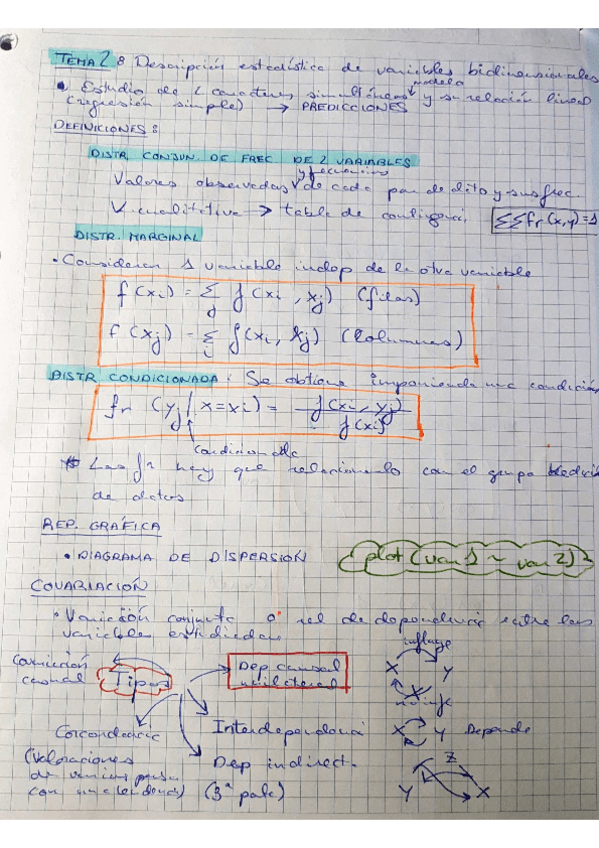 TEMA 2: Descripción estadística de variables bidimensionales
• Estudio de 2 caracteres simultáneos y su relación lineal
modelo
(regresión simple) → PREDICCIONES
DEFINICIONES:
DISTR. CONJUN. DE FREC DE 2 VARIABLES
y frecuencias
Valores observados de cada par de dato y sus frec.
V. cualitativa → tabla de contingenc. ΣΣfr(x,y)=1
DISTR. MARGINAL
• Consideran 1 variable indep de la otra variable
f(xi) = Σj f(xi, xj) (filas)
f(xj) = Σi f(xi, xj) (columnas)
DISTR CONDICIONADA: Se obtiene imponiendo una condición
fr (yj | x=xi) = f(xi, yj) / f(xi)
condicionada
* Las fr hay que relacionarlo con el grupo
de datos
REP. GRÁFICA
• DIAGRAMA DE DISPERSIÓN plot (var 1 ~ var 2)
COVARIACIÓN
• Variación conjunta o rel de dependencia entre las
variables estudiadas
influye
Covariación
casual
Tipos
Dep causal
unilateral
X Y
Concordancia
Interdependencia
X Y Depende
(Valoraciones
de varias
con una
Dep indirect.
(3ª
Z
Y X